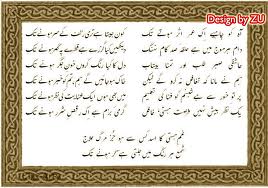 Design by ZU
آہ کو چاہیے اک عمر اثر ہونے تک کون جیتا ہے تری زلف کے سر ہونے تک
دام ہر موج میں ہے حلقہ صد کام نہنگ دیکھیں کیا گزرے ہے قطرے پہ گہر ہونے تک
عاشقی صبر طلب اور تمنا بیتاب دل کا کیا رنگ کروں خون جگر ہونے تک
ہم نے مانا کہ تغافل نہ کرو گے لیکن خاک ہو جائیں گے ہم، تم کو خبر ہونے تک
پرتو خور سے ہے شبنم کو فنا کی تعلیم میں بھی ہوں ایک عنایت کی نظر ہونے تک
یک نظر بیش نہیں فرصت ہستی غافل گرمی بزم ہے اک رقص شرر ہونے تک
غم ہستی کا اسد کس سے ہو جز مرگ علاج
شمع ہر رنگ میں جلتی ہے سحر ہونے تک